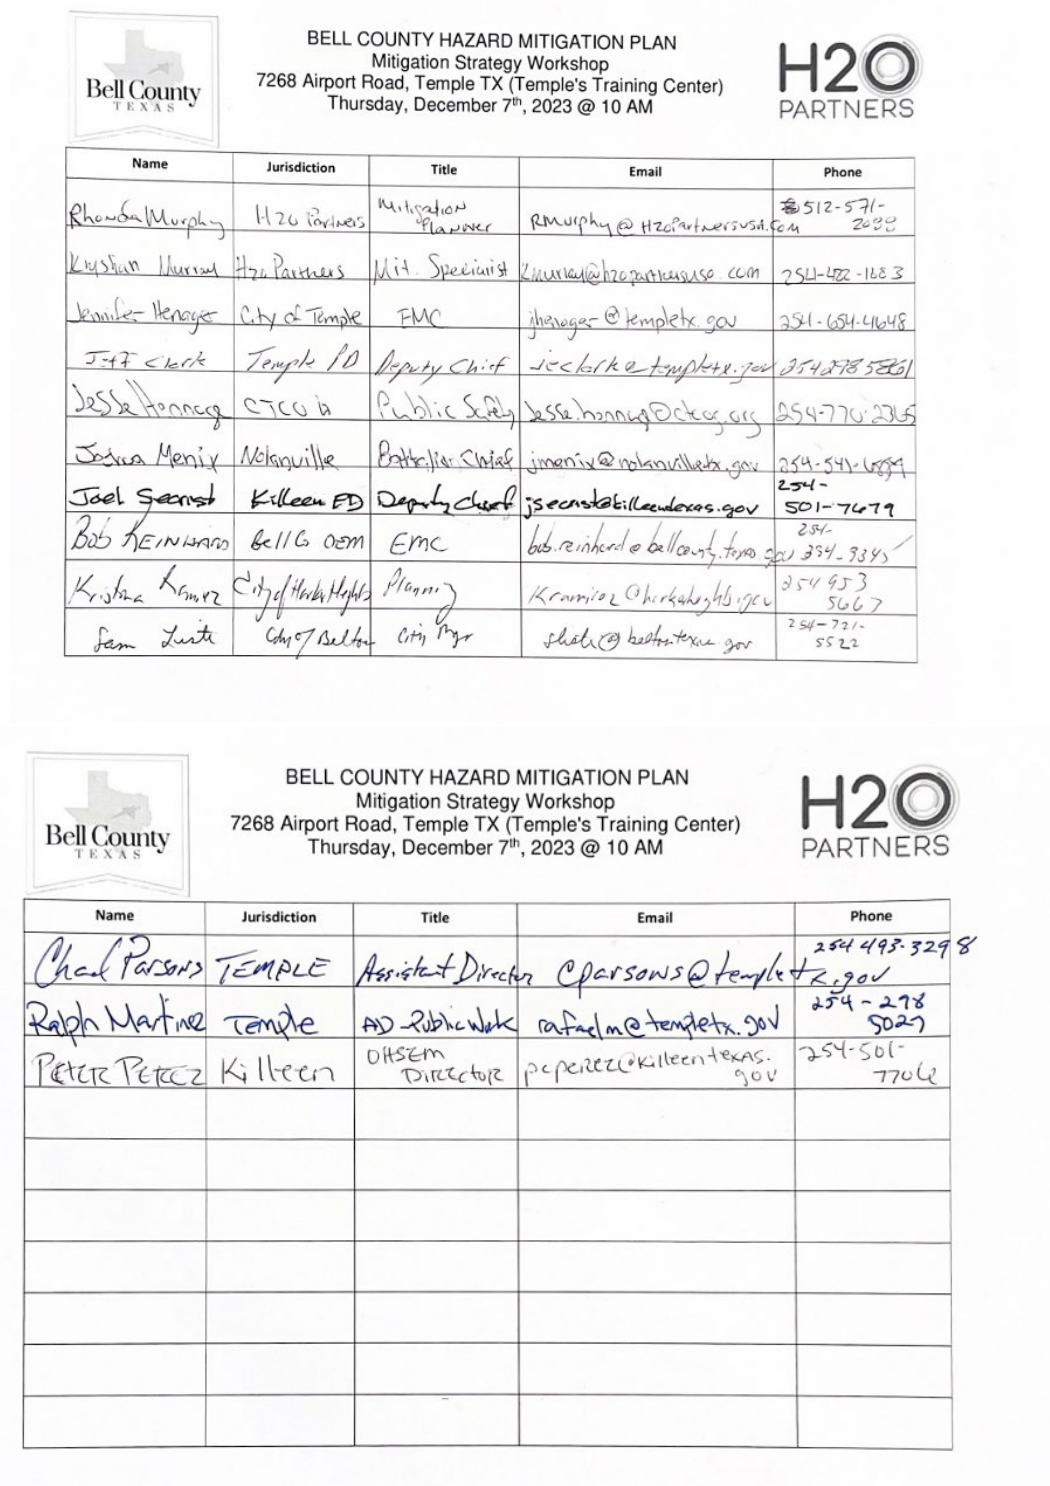 Bell County
TEXAS
BELL COUNTY HAZARD MITIGATION PLAN
Mitigation Strategy Workshop
7268 Airport Road, Temple TX (Temple's Training Center)
Thursday, December 7th, 2023 @ 10 AM
H2O
PARTNERS
Name Jurisdiction Title Email Phone
Rhonda Murphy H2O Partners Mitigation Planner RMurphy@H2oPartnersusa.com 512-571-
Murray H2o Partners Mit. Specialist
Jennifer Henager City of Temple EMC jhenager@templetx.gov 254-654-4648
Jeff Clark Temple PD Deputy Chief jeclark@templetx.gov
Jesse Hennage CTCOG Public Safety 254-770-2365
Joshua Menix Nolanville Battalion Chief jmenix@nolanvilletx.gov
Joel Secrist Killeen FD Deputy Chief jsecrist@killeentexas.gov 254-501-7679
Bob REINHARD Bell Co OEM EMC bob.reinhard@bellcounty.texas.gov
City of Harker Heights Planning 254 953 5667
Sam City of Belton City Mgr 254-721-5522
Bell County
TEXAS
BELL COUNTY HAZARD MITIGATION PLAN
Mitigation Strategy Workshop
7268 Airport Road, Temple TX (Temple's Training Center)
Thursday, December 7th, 2023 @ 10 AM
H2O
PARTNERS
Name Jurisdiction Title Email Phone
Chad Parsons TEMPLE Assistant Director cparsons@templetx.gov 254 493-3298
Ralph Martinez Temple AD-Public Work rafaelm@templetx.gov 254-298
PETER PEREZ Killeen OHSEM DIRECTOR pcperez@killeentexas.gov 254-501-